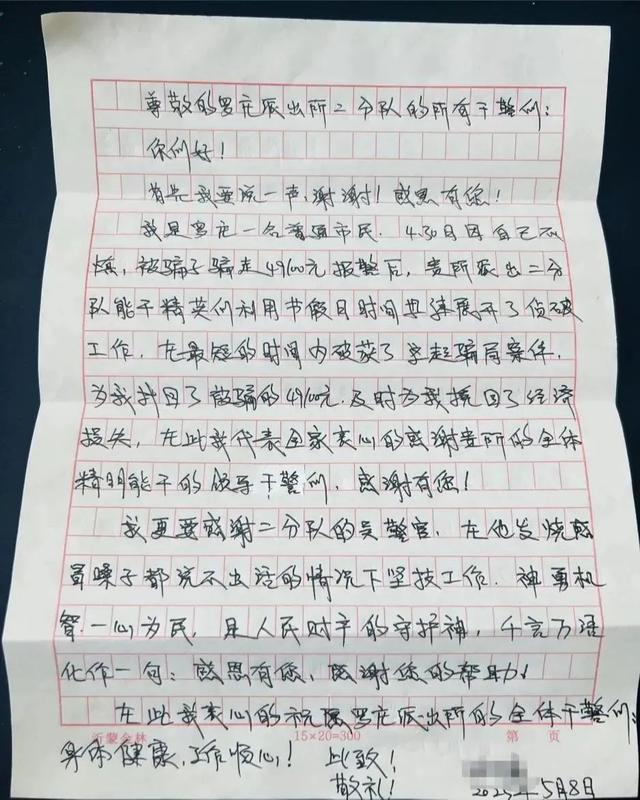 尊敬的罗庄派出所二分队的所有干警们:
你们好!
首先我要说一声,谢谢!感恩有您!
我是罗庄一名普通市民.4.30日因自己不
慎,被骗子骗走49100元.报警后,贵所派出二分
队能干精英们利用节假日时间迅速展开了侦破
工作.在最短的时间内破获了 骗局案件.
为我找回了被骗的49100元.及时为我挽回了经济
损失,在此我代表全家衷心的感谢贵所的全体
精明能干的领导干警们.感谢有您!
我更要感谢二分队的吴警官.在他发烧感
冒嗓子都说不出话的情况下坚持工作.神勇机
智.一心为民,是人民财产的守护神,千言万语
化作一句:感恩有您,感谢您的帮助!
在此我衷心的祝愿罗庄派出所的全体干警们、
沂蒙金林 15×20=300 第 页
身体健康,工作顺心! 此致!
敬礼! 2025年5月8日